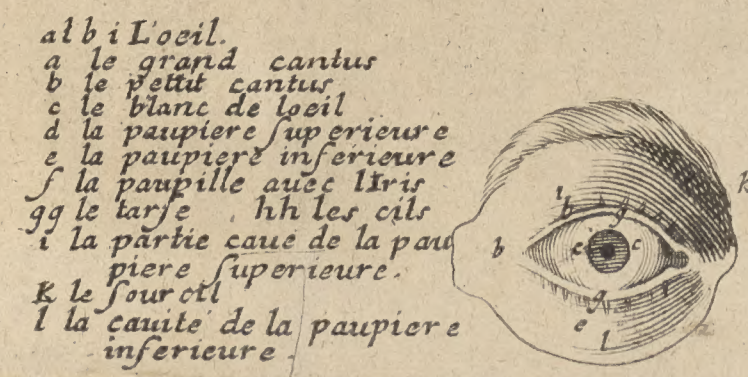 a l b i L'oeil.
a le grand cantus
b le pettit cantus
c le blanc de loeil
d la paupiere ſuperieure
e la paupiere inferieure
f la paupille auec lIris
gg le tarſe hh les cils
i la partie caue de la pau
piere ſuperieure.
K le ſourcil
l la cauité de la paupiere
inferieure.
K
i
h
g
b
c
c
g
i
e
l
a